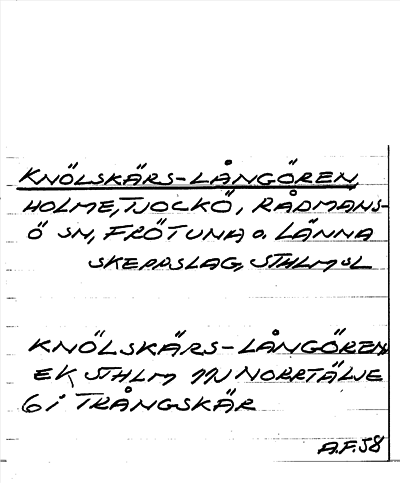 KNÖLSKÄRS-LÅNGÖREN,
HOLME, TJOCKÖ, RÅDMANS-
Ö SN, FRÖTUNA o. LÄNNA
SKEPPSLAG, STHLMSL
KNÖLSKÄRS-LÅNGÖREN,
EK, STHLM 11 NV NORRTÄLJE
6 i TRÅNGSKÄR
A.F.58